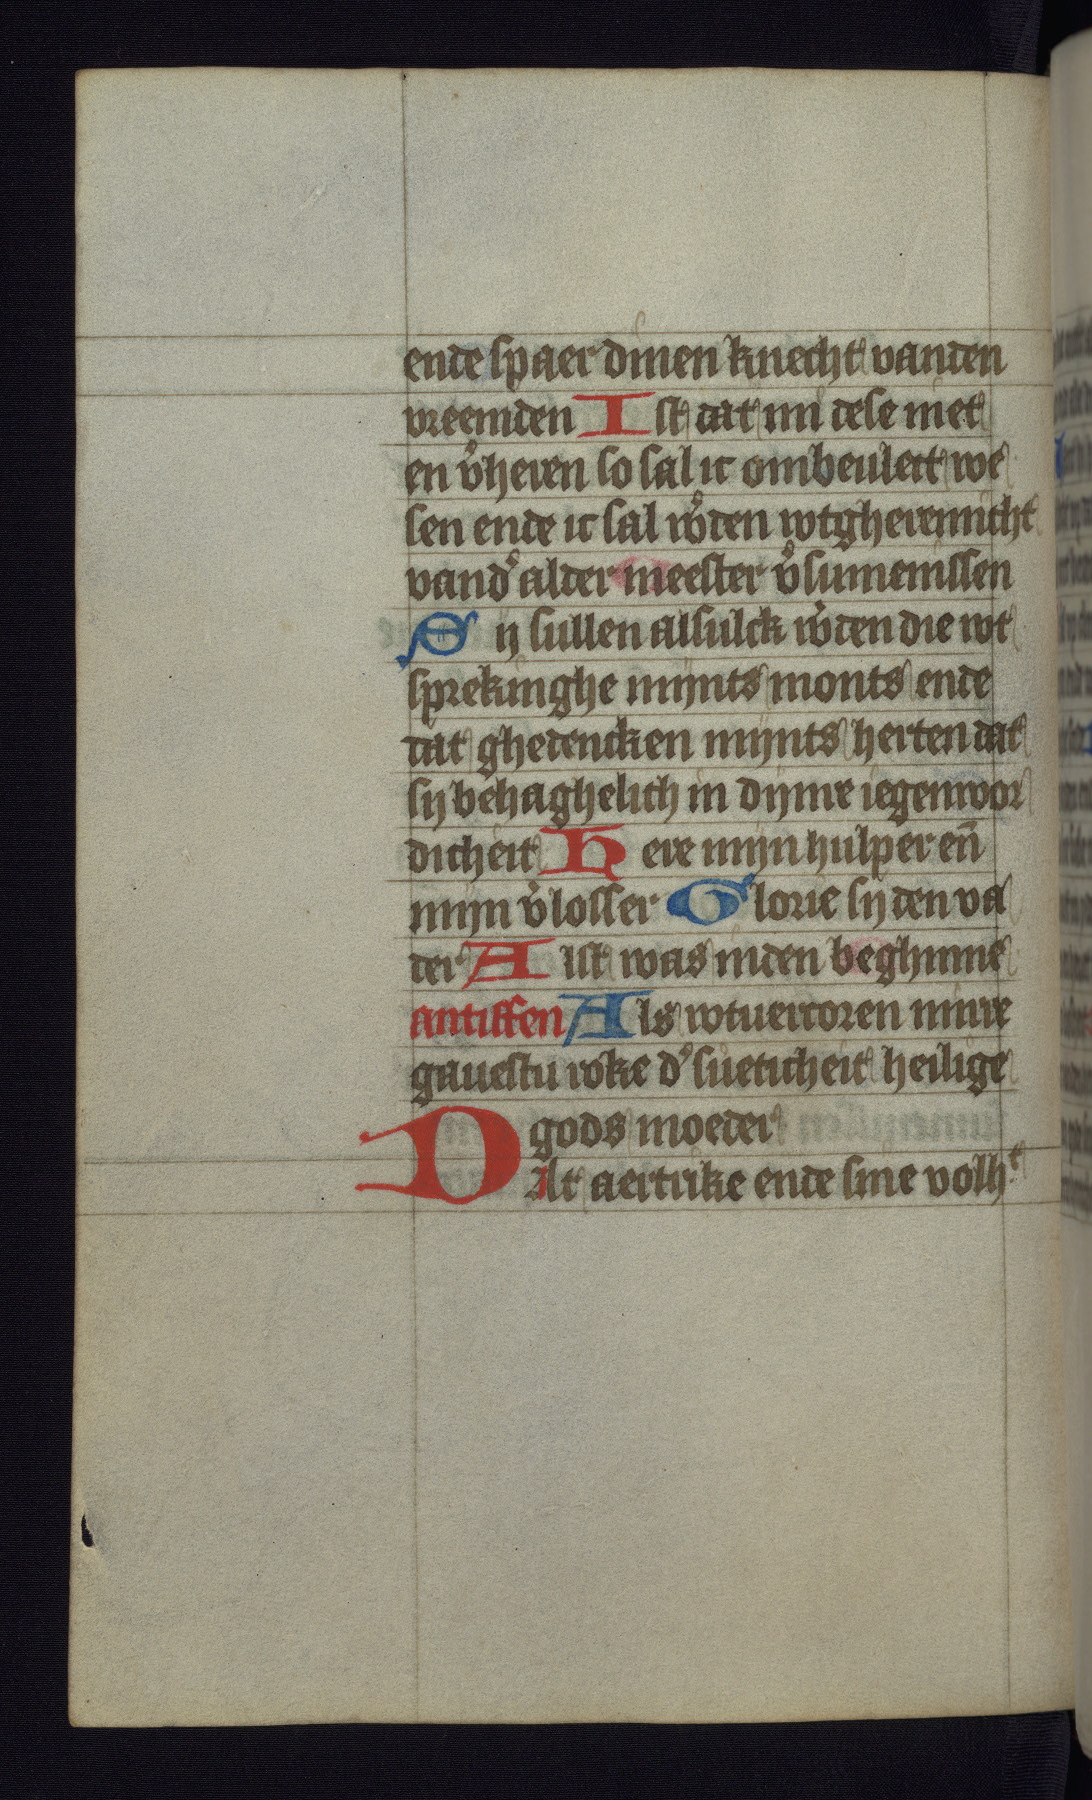 ende spaer dinen knecht vanden
vreemden Ist dat mi dese niet
en v̾heren so sal ic ombeulect we
sen ende ic sal w̾den wtgherenicht
vand̾ alder meester v̾sumenissen
Sij sullen alsulck w̾den die wt
sprekinghe mijnts monts ende
dat ghedencken mijnts herten dat
sij behaghelich in dijnre iegenwor
dicheit Here mijn hulper en̄
mijn v̾losser Glorie sij den va
der Alst was inden beghinne
antiffen Als wtuercoren mirre
gauestu roke d̾ sueticheit heilige
gods moeder
Dat aertrike ende sine volhᵗ